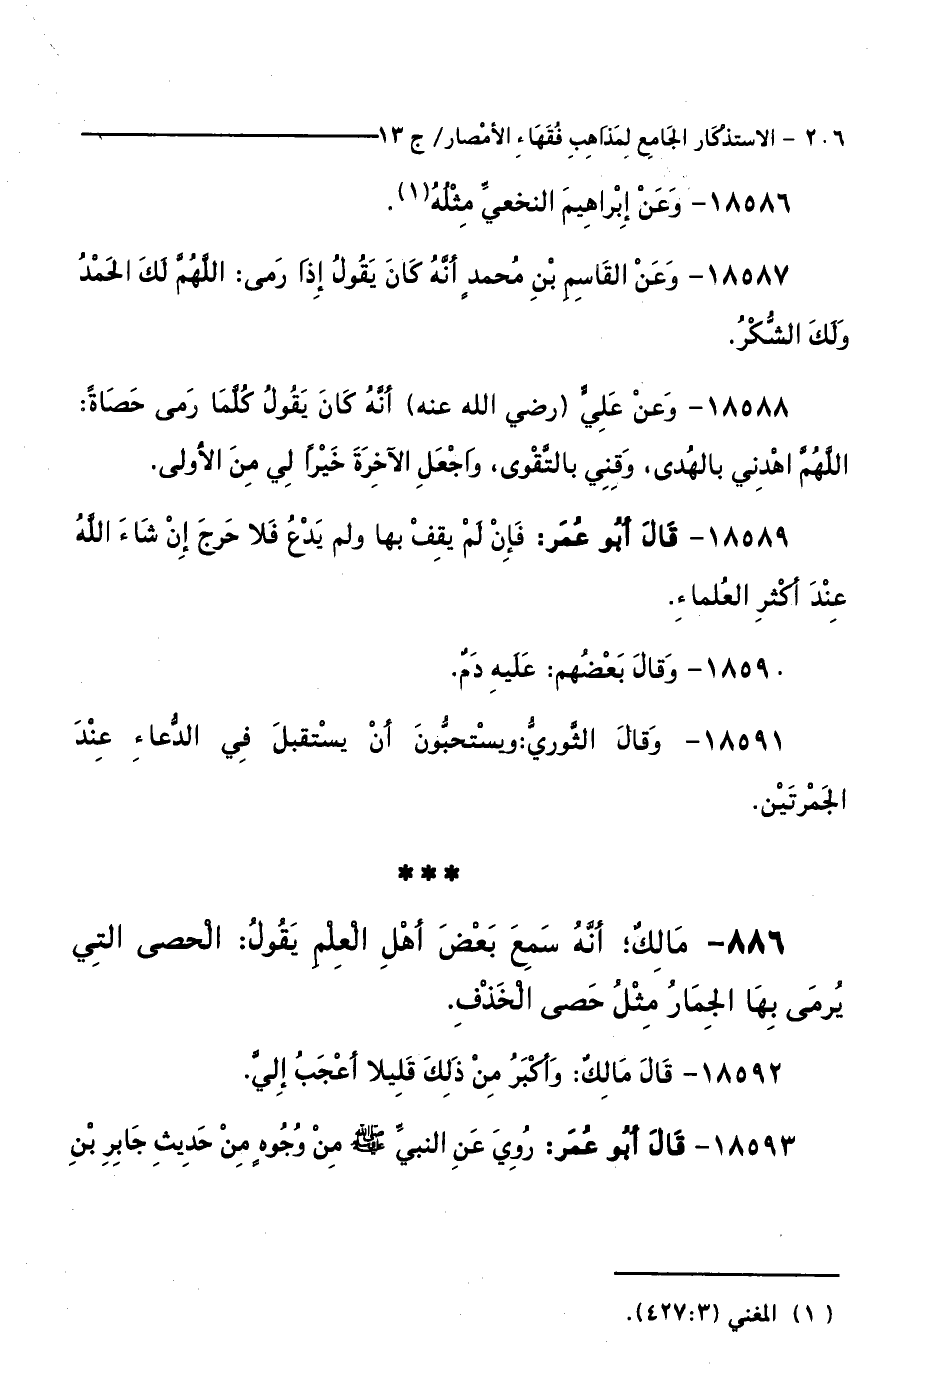 ٢٠٦ - الاستذْكَار الجَامِع لِمَذاهِبِ فُقَهَاءِ الأمْصار/ ج ١٣
١٨٥٨٦- وَعَنْ إِبْراهِيمَ النخعيِّ مِثْلُهُ(١).
١٨٥٨٧- وَعَنْ القَاسِمِ بْنِ مُحمدٍ أَنَّهُ كَانَ يَقُولُ إِذَا رَمى: اللَّهُمَّ لَكَ الحَمْدُ
وَلَكَ الشُّكْرُ.
١٨٥٨٨- وَعنْ عَلِيٍّ (رضي الله عنه) أَنَّهُ كَانَ يَقُولُ كُلَّمَا رَمى حَصَاةً:
اللَّهُمَّ اهْدِني بالهُدى، وَقِنِي بالتَّقْوى، واَجْعَلِ الآخِرَةَ خَيْراً لي مِنَ الأولى.
١٨٥٨٩- قَالَ أَبُو عُمَر: فَإِنْ لَمْ يقِفْ بها ولم يَدْعُ فَلا حَرجَ إِنْ شَاءَ اللَّهُ
عِنْدَ أَكْثرِ العُلماءِ.
١٨٥٩٠- وَقالَ بَعْضُهم: عَلَيهِ دَمٌ.
١٨٥٩١- وَقالَ الثَّوريُّ:ويسْتحبُّونَ أَنْ يسْتقبلَ فِي الدُّعاءِ عِنْدَ
الجَمْرتَيْن.
***
٨٨٦- مَالِكٌ؛ أَنَّهُ سَمِعَ بَعْضَ أَهْلِ الْعِلْمِ يَقُولُ: الْحصى التِي
يُرمَى بِهَا الجِمَارُ مِثْلُ حَصى الْخَذْفِ.
١٨٥٩٢- قَالَ مَالِكٌ: وَأَكْبَرُ مِنْ ذَلِكَ قَلِيلا أَعْجَبُ إِليَّ.
١٨٥٩٣- قَالَ أَبُو عُمَر: رُوِيَ عَنِ النبيِّ ﷺ مِنْ وُجُوهٍ مِنْ حَدِيثِ جَابِرِ بْنِ
(١) المغني (٣:٤٢٧).